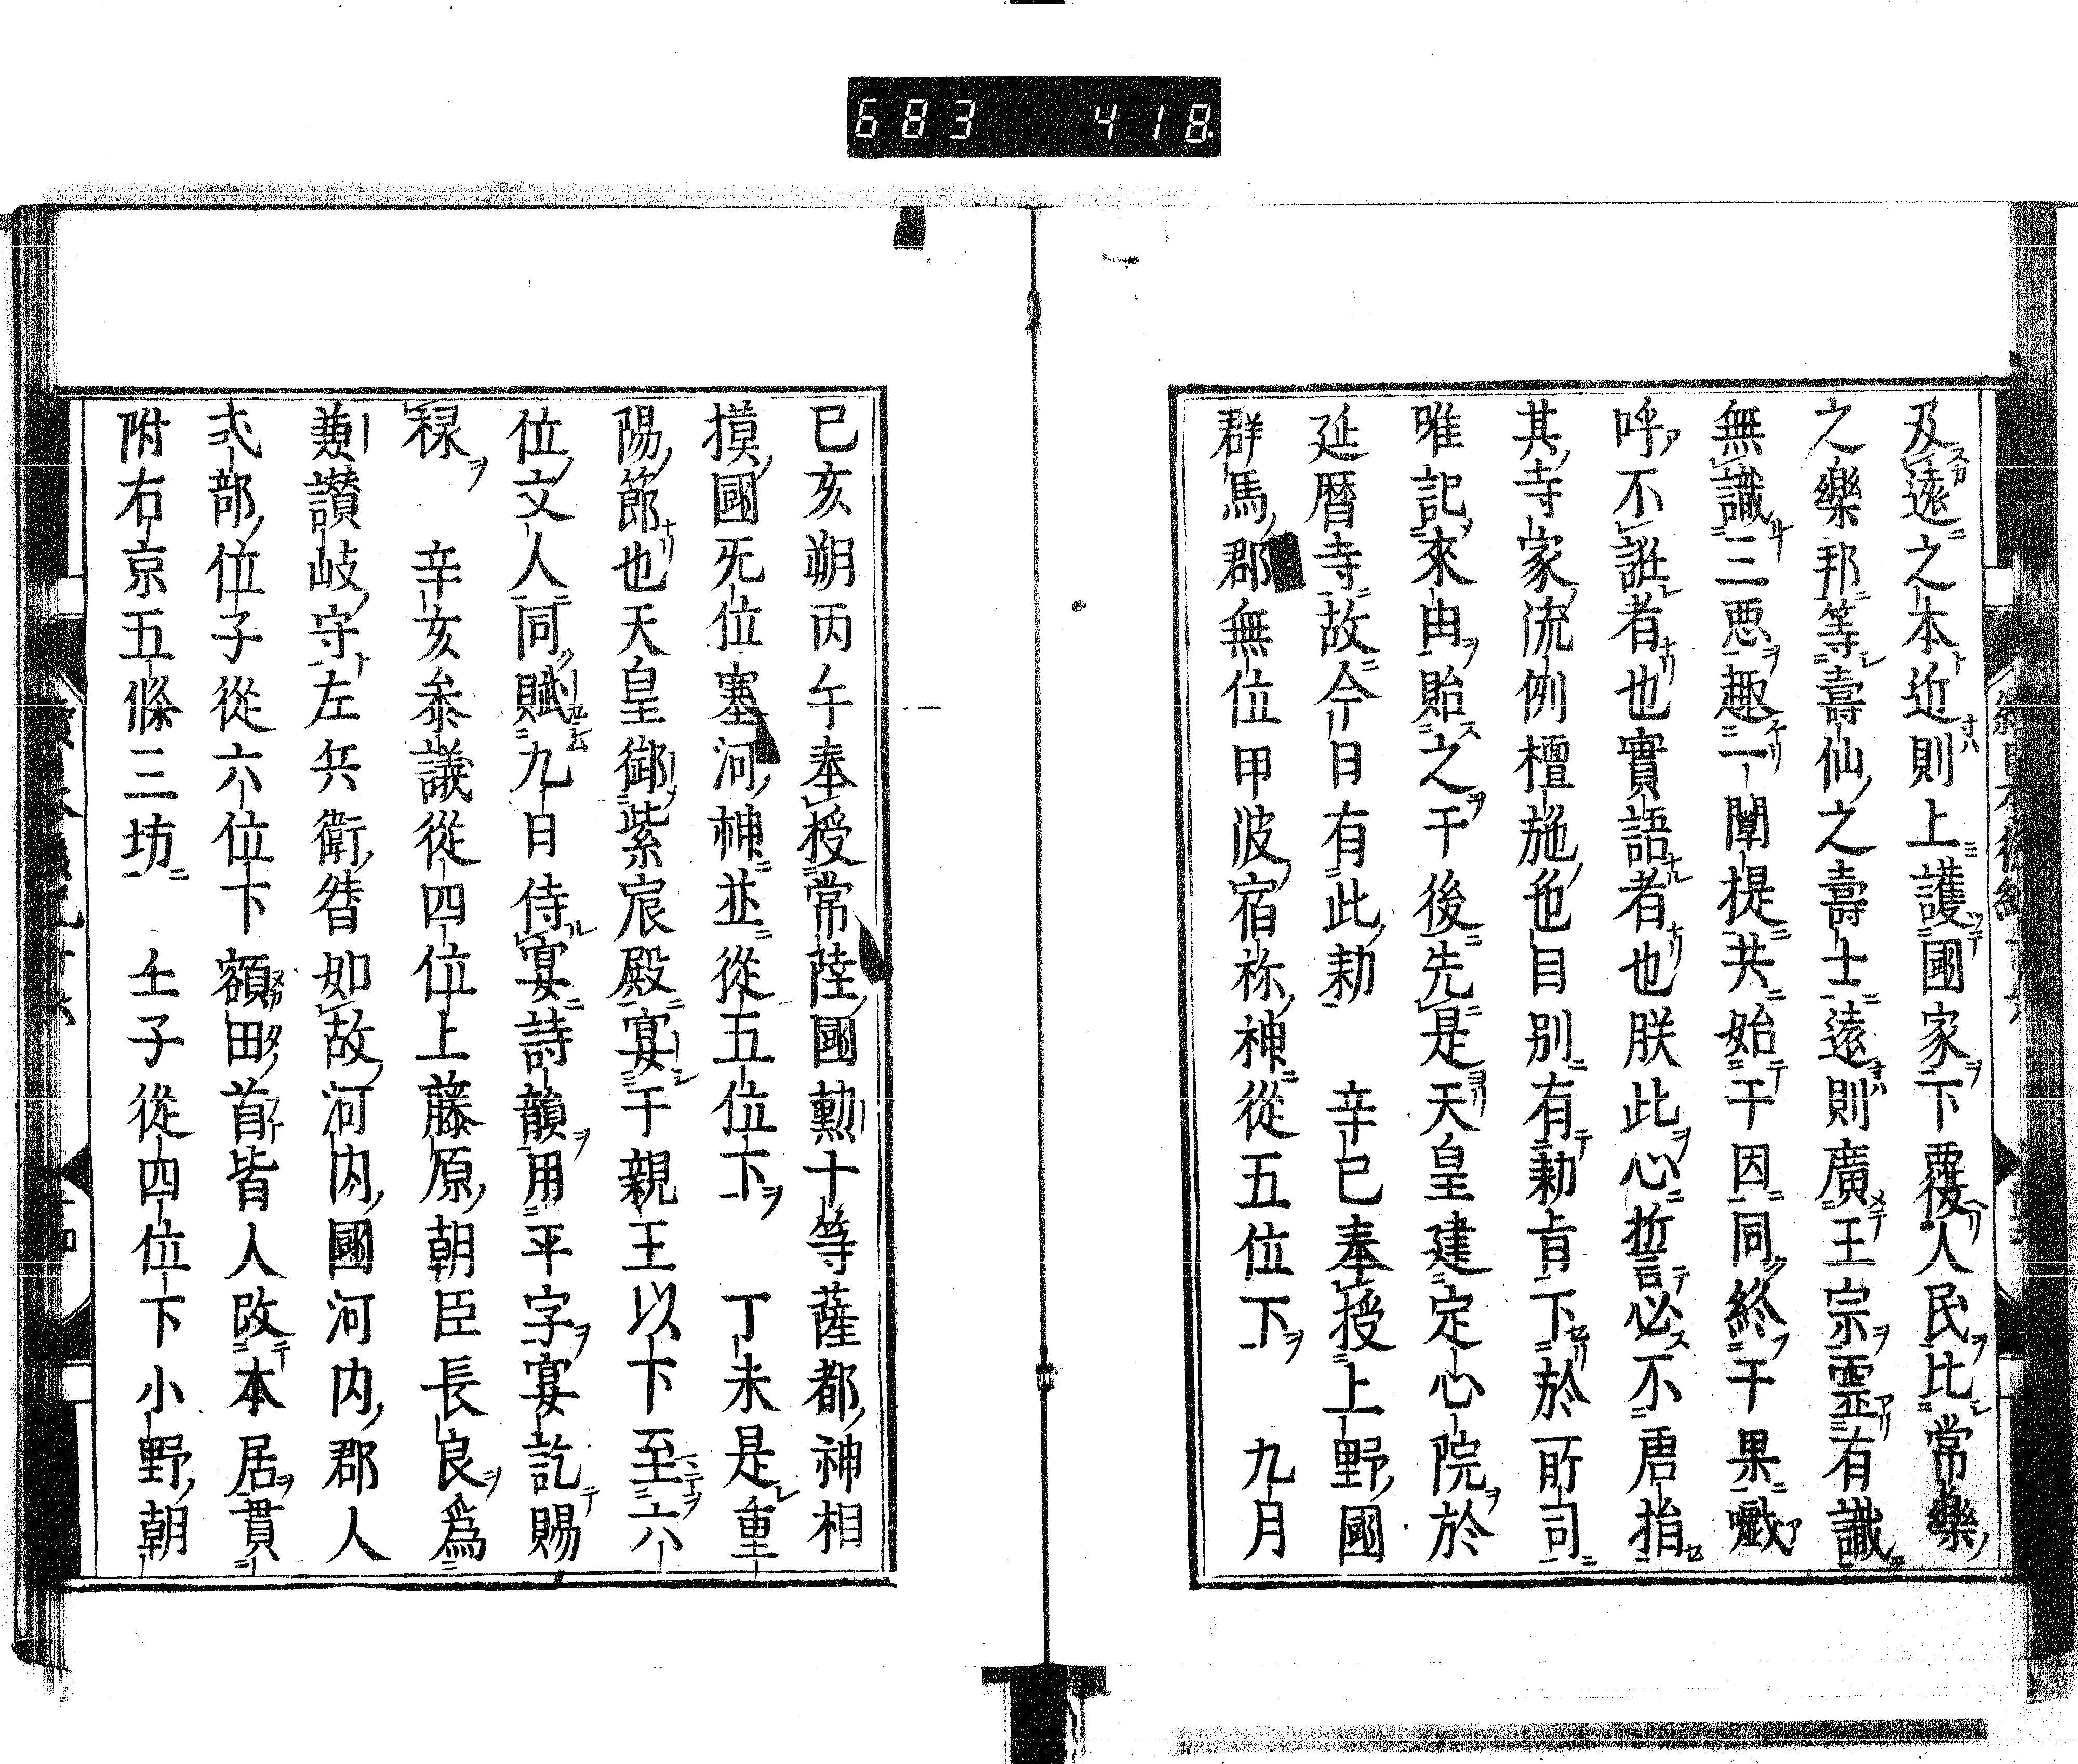 683 418
及遠之本近則上護國家下覆人民比常樂
之樂邦等壽仙之壽士遠則廣王宗靈有識
無識三悪趣一闡提共始于因同終于果巇
呼不誑者也實語者也朕此心哲言必不唐指
其寺家流例檀施色目別有勅旨下於所司
唯記來由貽之于後先是天皇建定心院於
延暦寺故今日有此勅　辛巳奉授上野國
群馬郡無位甲波宿祢神從五位下　九月
己亥朔丙午奉授常陸國勲十等薩都神相
摸國旡位塞河神並從五位下　丁未是重
陽節也天皇御紫宸殿宴于親王以下至六
位文人同賦九日侍宴詩韻用平字宴訖賜
祿　辛亥叅議從四位上藤原朝臣長良爲
兼讃岐守左兵衛督如故河内國河内郡人
式部位子從六位下額田首皆人改本居貫
附右京五條三坊　壬子從四位下小野朝